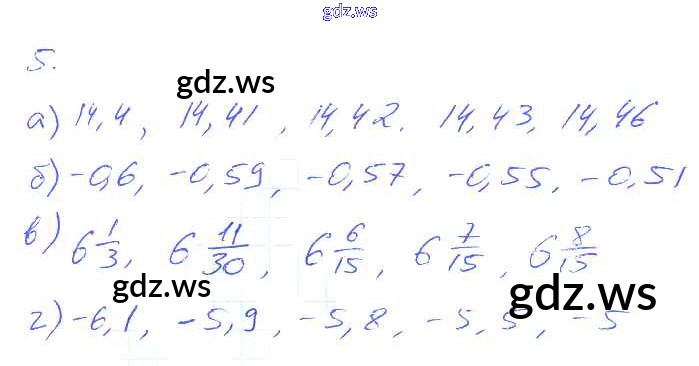 gdz.ws
5.
gdz.ws
а) 14,4, 14,41, 14,42. 14,43, 14,46
б) -0,6, -0,59, -0,57, -0,55, -0,51
в) 6 1/3, 6 11/30, 6 6/15, 6 7/15, 6 8/15
gdz.ws gdz.ws
г) -6,1, -5,9, -5,8, -5,5, -5